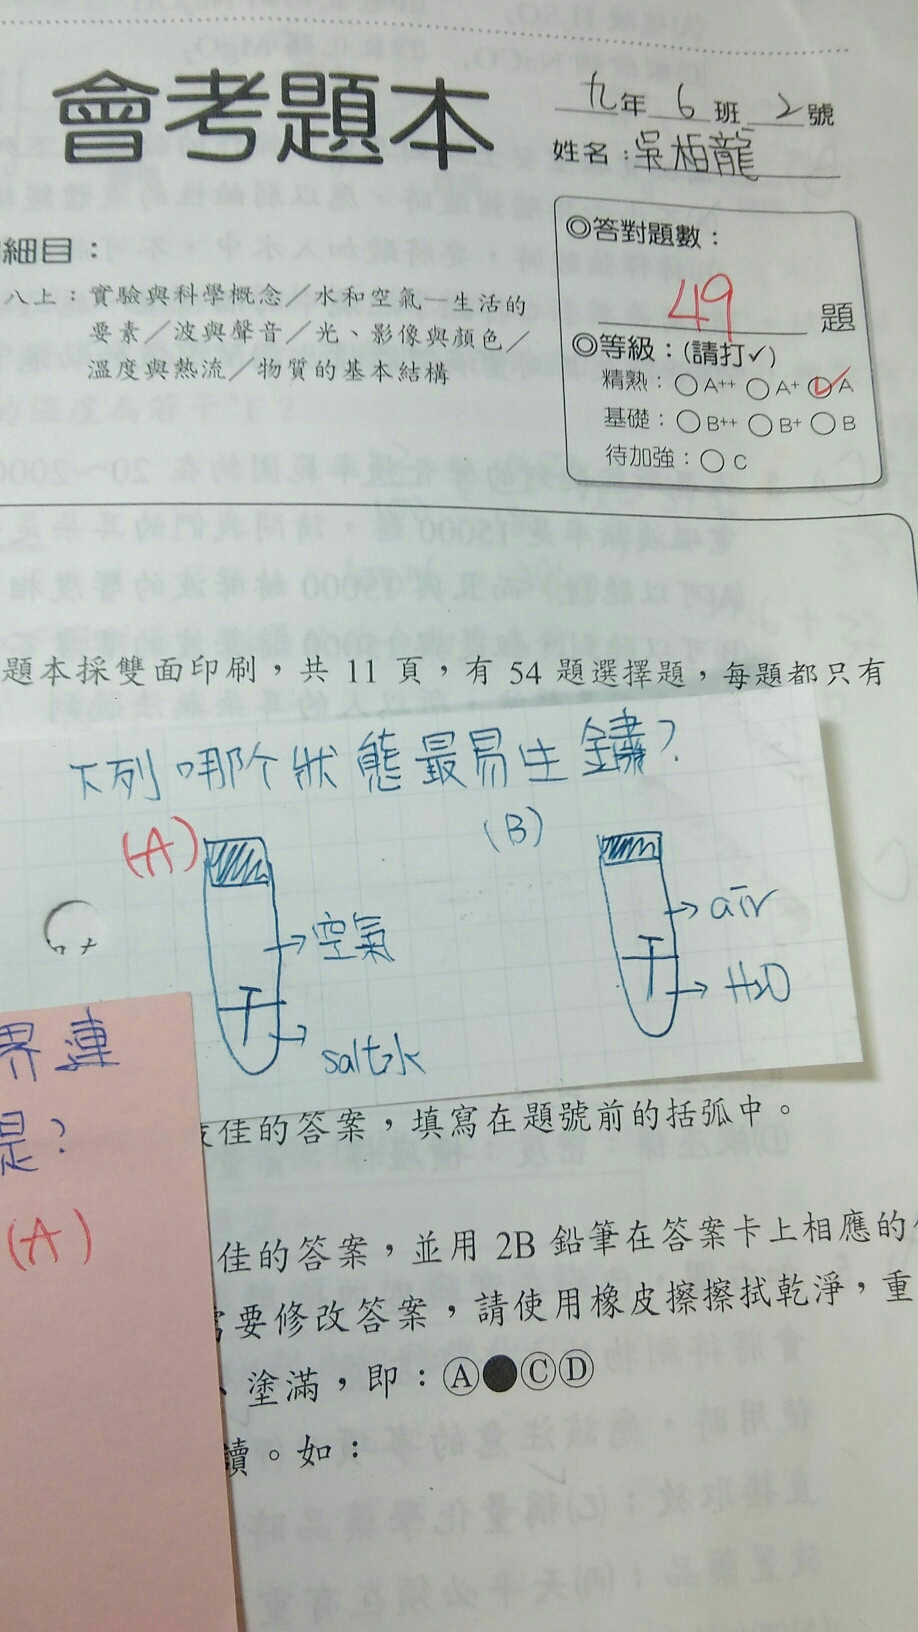 會考題本
九年6班2號
姓名:吳柏龍
細目:
八上:實驗與科學概念/水和空氣—生活的
要素/波與聲音/光、影像與顏色/
溫度與熱流/物質的基本結構
◎答對題數:
49題
◎等級:(請打✓)
精熟:○A++ ○A+ ○A
基礎:○B++ ○B+ ○B
待加強:○C
題本採雙面印刷,共11頁,有54題選擇題,每題都只有
下列哪个狀態最易生鏽?
(A) (B)
空氣 air
salt水 H2O
界連
是?
(A)
佳的答案,填寫在題號前的括弧中。
佳的答案,並用2B鉛筆在答案卡上相應的
要修改答案,請使用橡皮擦擦拭乾淨,重
、塗滿,即:Ⓐ●ⒸⒹ
讀。如: